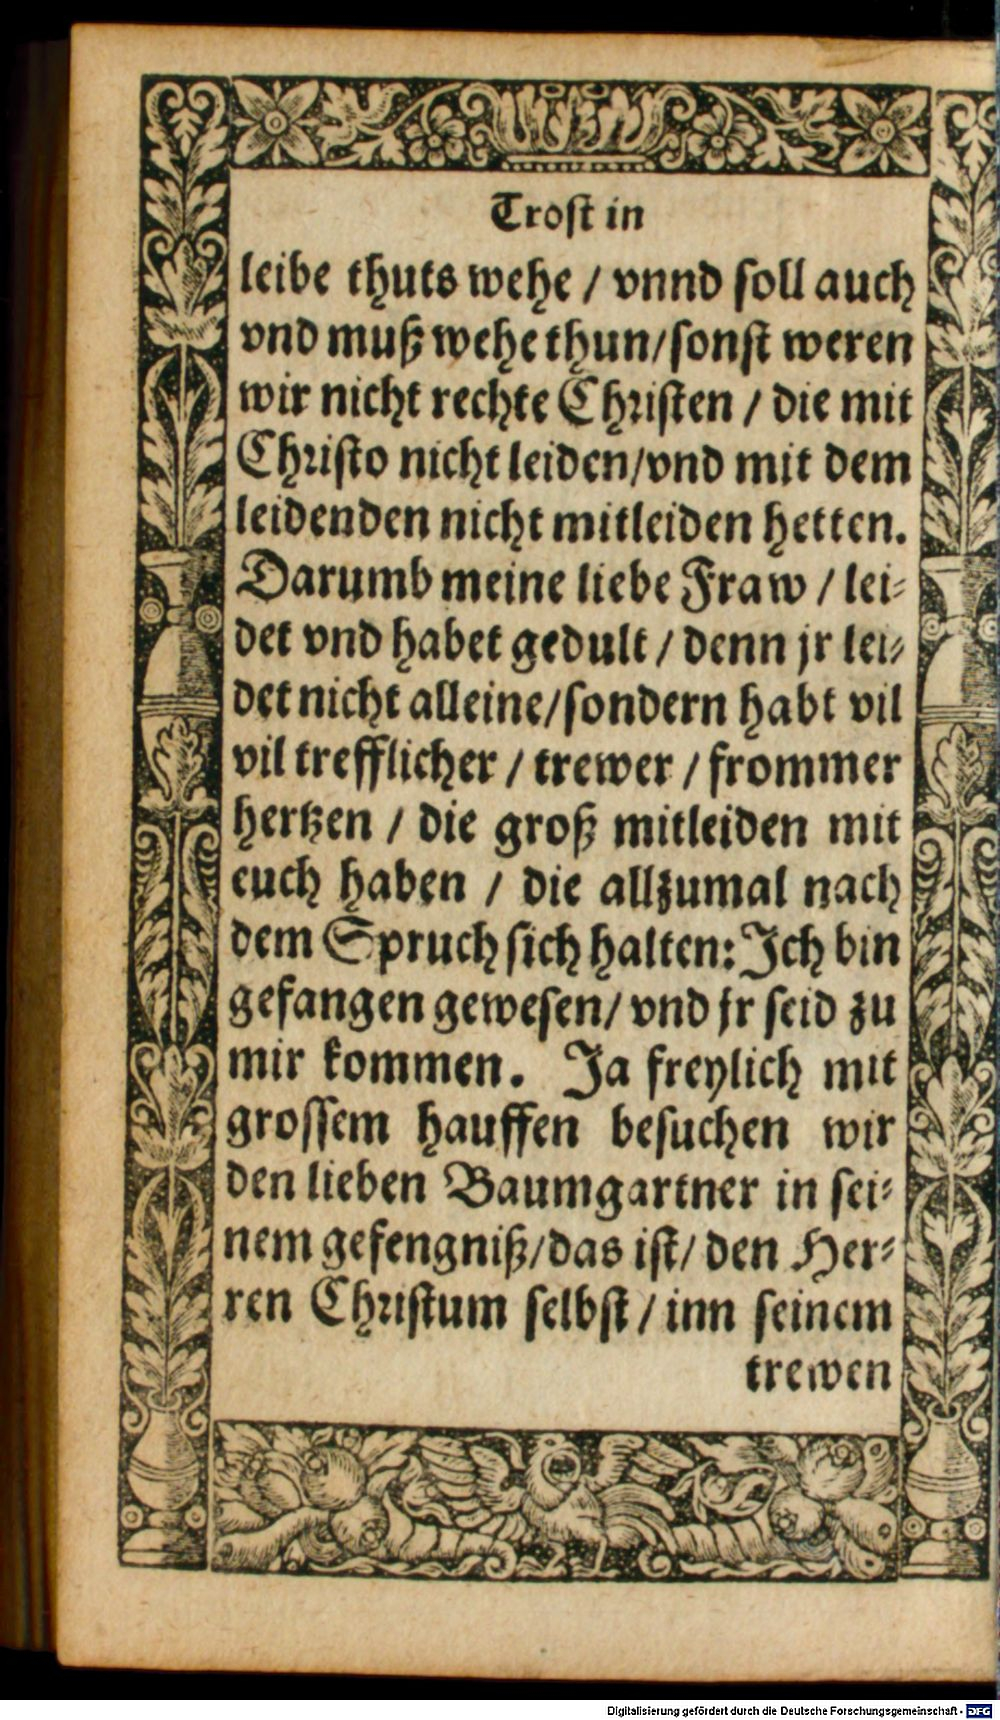 Trost in
leibe thuts wehe / vnnd soll auch
vnd muß wehe thun/sonst weren
wir nicht rechte Christen / die mit
Christo nicht leiden/vnd mit dem
leidenden nicht mitleiden hetten.
Darumb meine liebe Fraw / lei⸗
det vnd habet gedult / denn jr lei⸗
det nicht alleine/sondern habt vil
vil trefflicher / trewer / frommer
hertzen / die groß mitleiden mit
euch haben / die allzumal nach
dem Spruch sich halten: Ich bin
gefangen gewesen/ vnd jr seid zu
mir kommen. Ja freylich mit
grossem hauffen besuchen wir
den lieben Baumgartner in sei⸗
nem gefengniß/das ist/ den Her⸗
ren Christum selbst / inn seinem
trewen
Digitalisierung gefördert durch die Deutsche Forschungsgemeinschaft - DFG